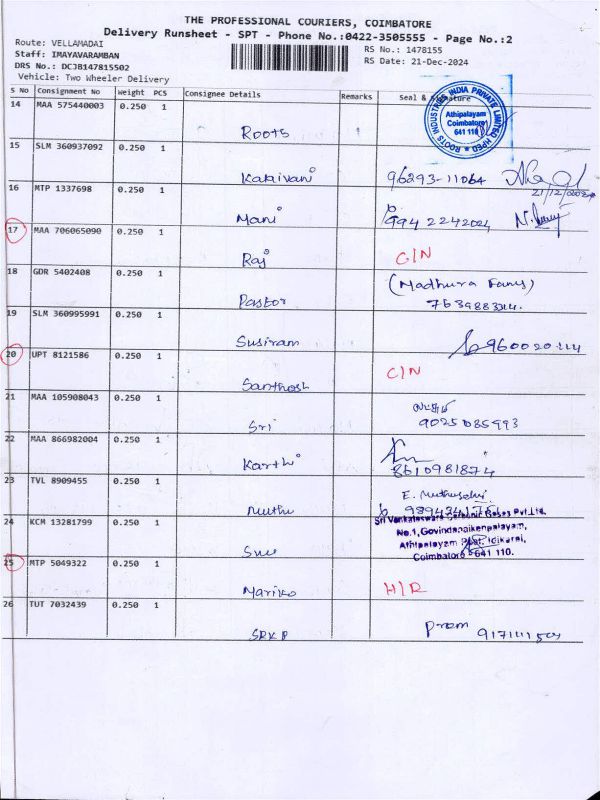 THE PROFESSIONAL COURIERS, COIMBATORE
Delivery Runsheet - SPT - Phone No.:0422-3505555 - Page No.:2
Route: VELLAMADAI
Staff: IMAYAVARAMBAN
DRS No.: DCJB147815502
Vehicle: Two Wheeler Delivery
RS No.: 1478155
RS Date: 21-Dec-2024
S No Consignment No Weight PCS Consignee Details Remarks Seal & Signature
14 MAA 575440003 0.250 1 Roots
ROOTS INDUSTRIES INDIA PRIVATE LIMITED HPED
Athipalayam
Coimbatore
641 110
15 SLM 360937092 0.250 1 Kalaivani 96293-11064
21/12/2024
16 MTP 1337698 0.250 1 Mani 9942242024
17 MAA 706065090 0.250 1 Raj C/N
18 GDR 5402408 0.250 1 Pastor (Madhura
19 SLM 360995991 0.250 1 Susiram
20 UPT 8121586 0.250 1 Santhosh C/N
21 MAA 105908043 0.250 1 Sri 9025085993
22 MAA 866982004 0.250 1 Karthi 8610981874
23 TVL 8909455 0.250 1 Muthu E.
24 KCM 13281799 0.250 1
Sri Venkateswara Gases Pvt.Ltd.
No.1,Govindanaikenpalayam,
Athipalayam Post, Idikarai,
Coimbatore - 641 110.
25 MTP 5049322 0.250 1 H/R
26 TUT 7032439 0.250 1 SRKP Prem